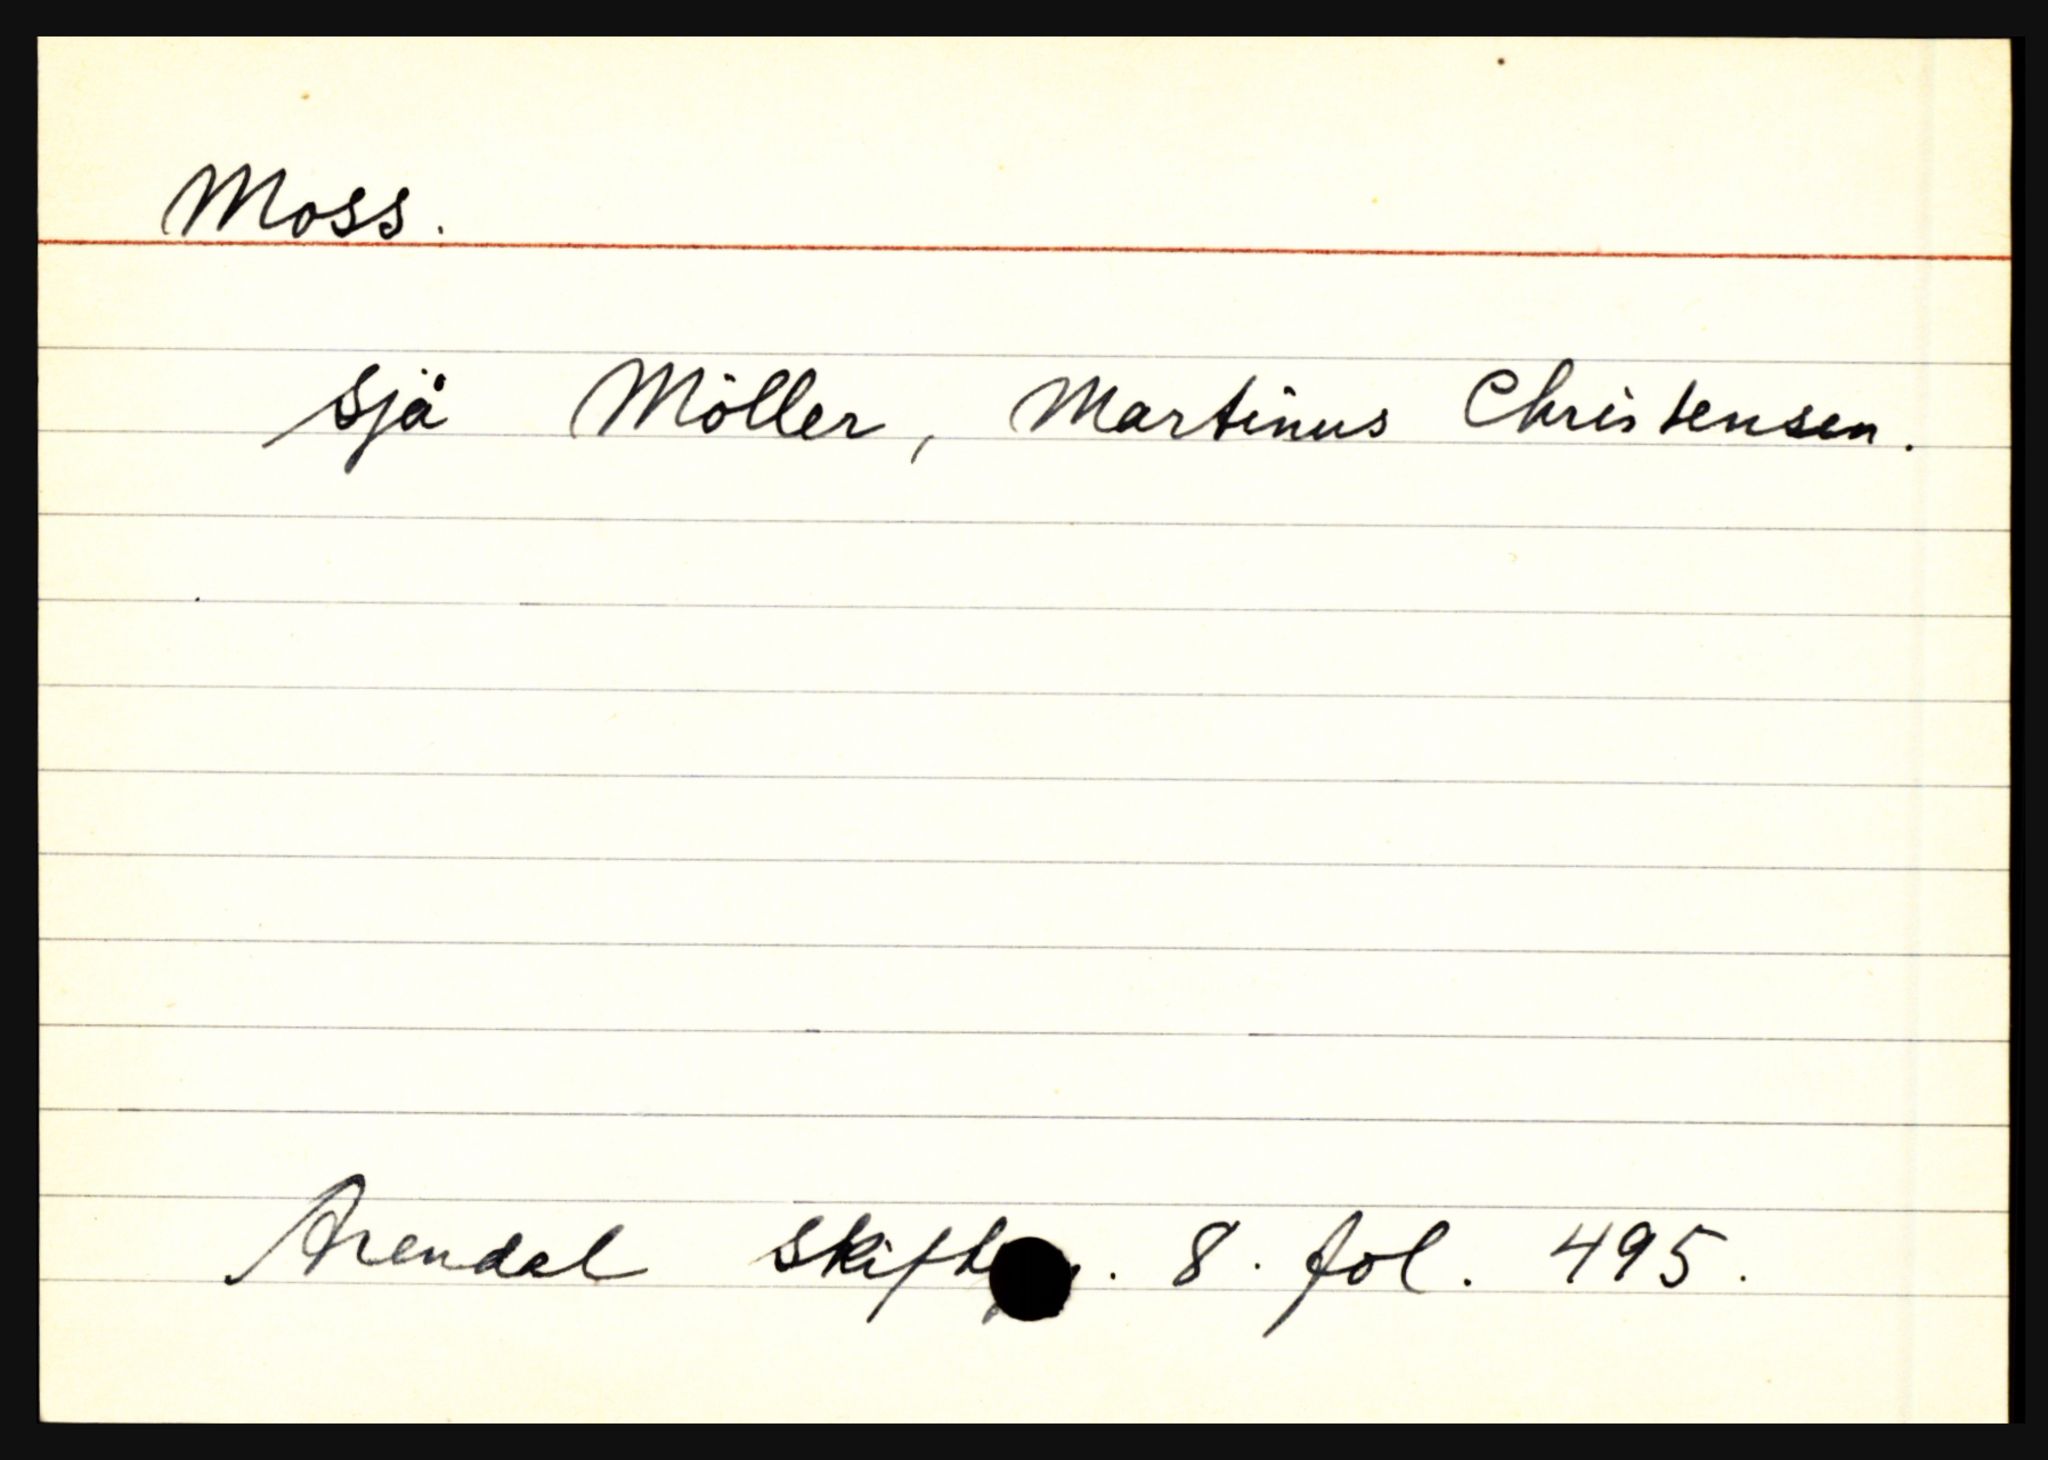 Moss.
sjå Möller, Martinus Christensen.
Arendal 8. fol. 495.